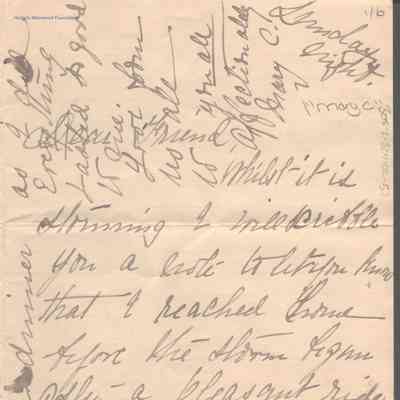 Sunday
night.
"mayc"
Dear Friend,
Whilst it is
storming I will scribble
you a note to let you know
that I reached home
before the storm began
after a pleasant ride
dinner
as I did
Everything
tasted so good
to me.
Your
to all
you all
affectionately
Mary C.